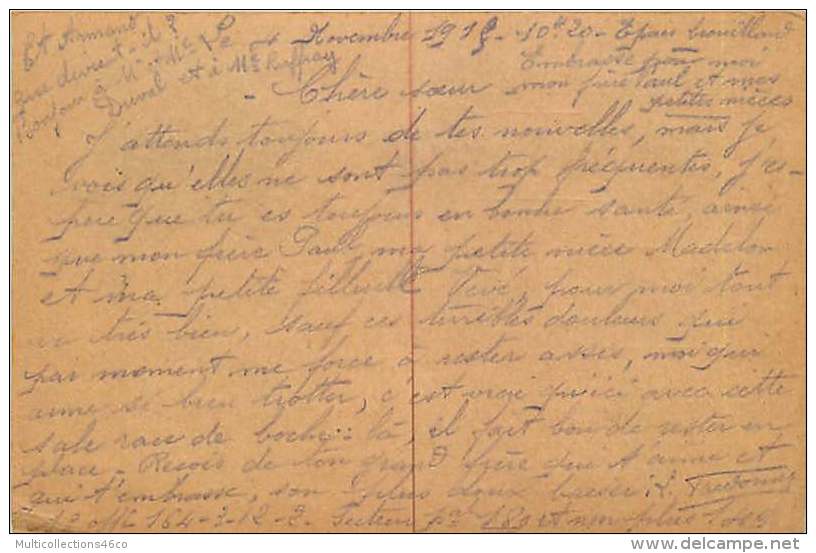 Et Armand,
que devient-il ?
Bonjour à Mr et Mme
Duval et à Mme Ruffray
Le 4 Novembre 191 - 10h20 - Epais brouillard
Embrasse pour moi
mon frère Paul et mes
petites nièces
- Chère sœur
J'attends toujours de tes nouvelles, mais je
vois qu'elles ne sont pas trop fréquentes, j'es-
père que tu es toujours en bonne santé, ainsi
que mon frère Paul, ma petite nièce Madelon
et ma petite filleule, pour moi tout
va très bien, sauf ces terribles douleurs qui
par moment me force à rester assis, moi qui
aime si bien trotter, c'est vrai qu'ici avec cette
sale race de boche là, il fait bon de rester en
place - Reçois de ton grand frère qui t'aime et
qui t'embrasse, son plus doux baiser
164-3-12-3. Secteur 180 et non plus
Multicollections46co
www.delcampe.net